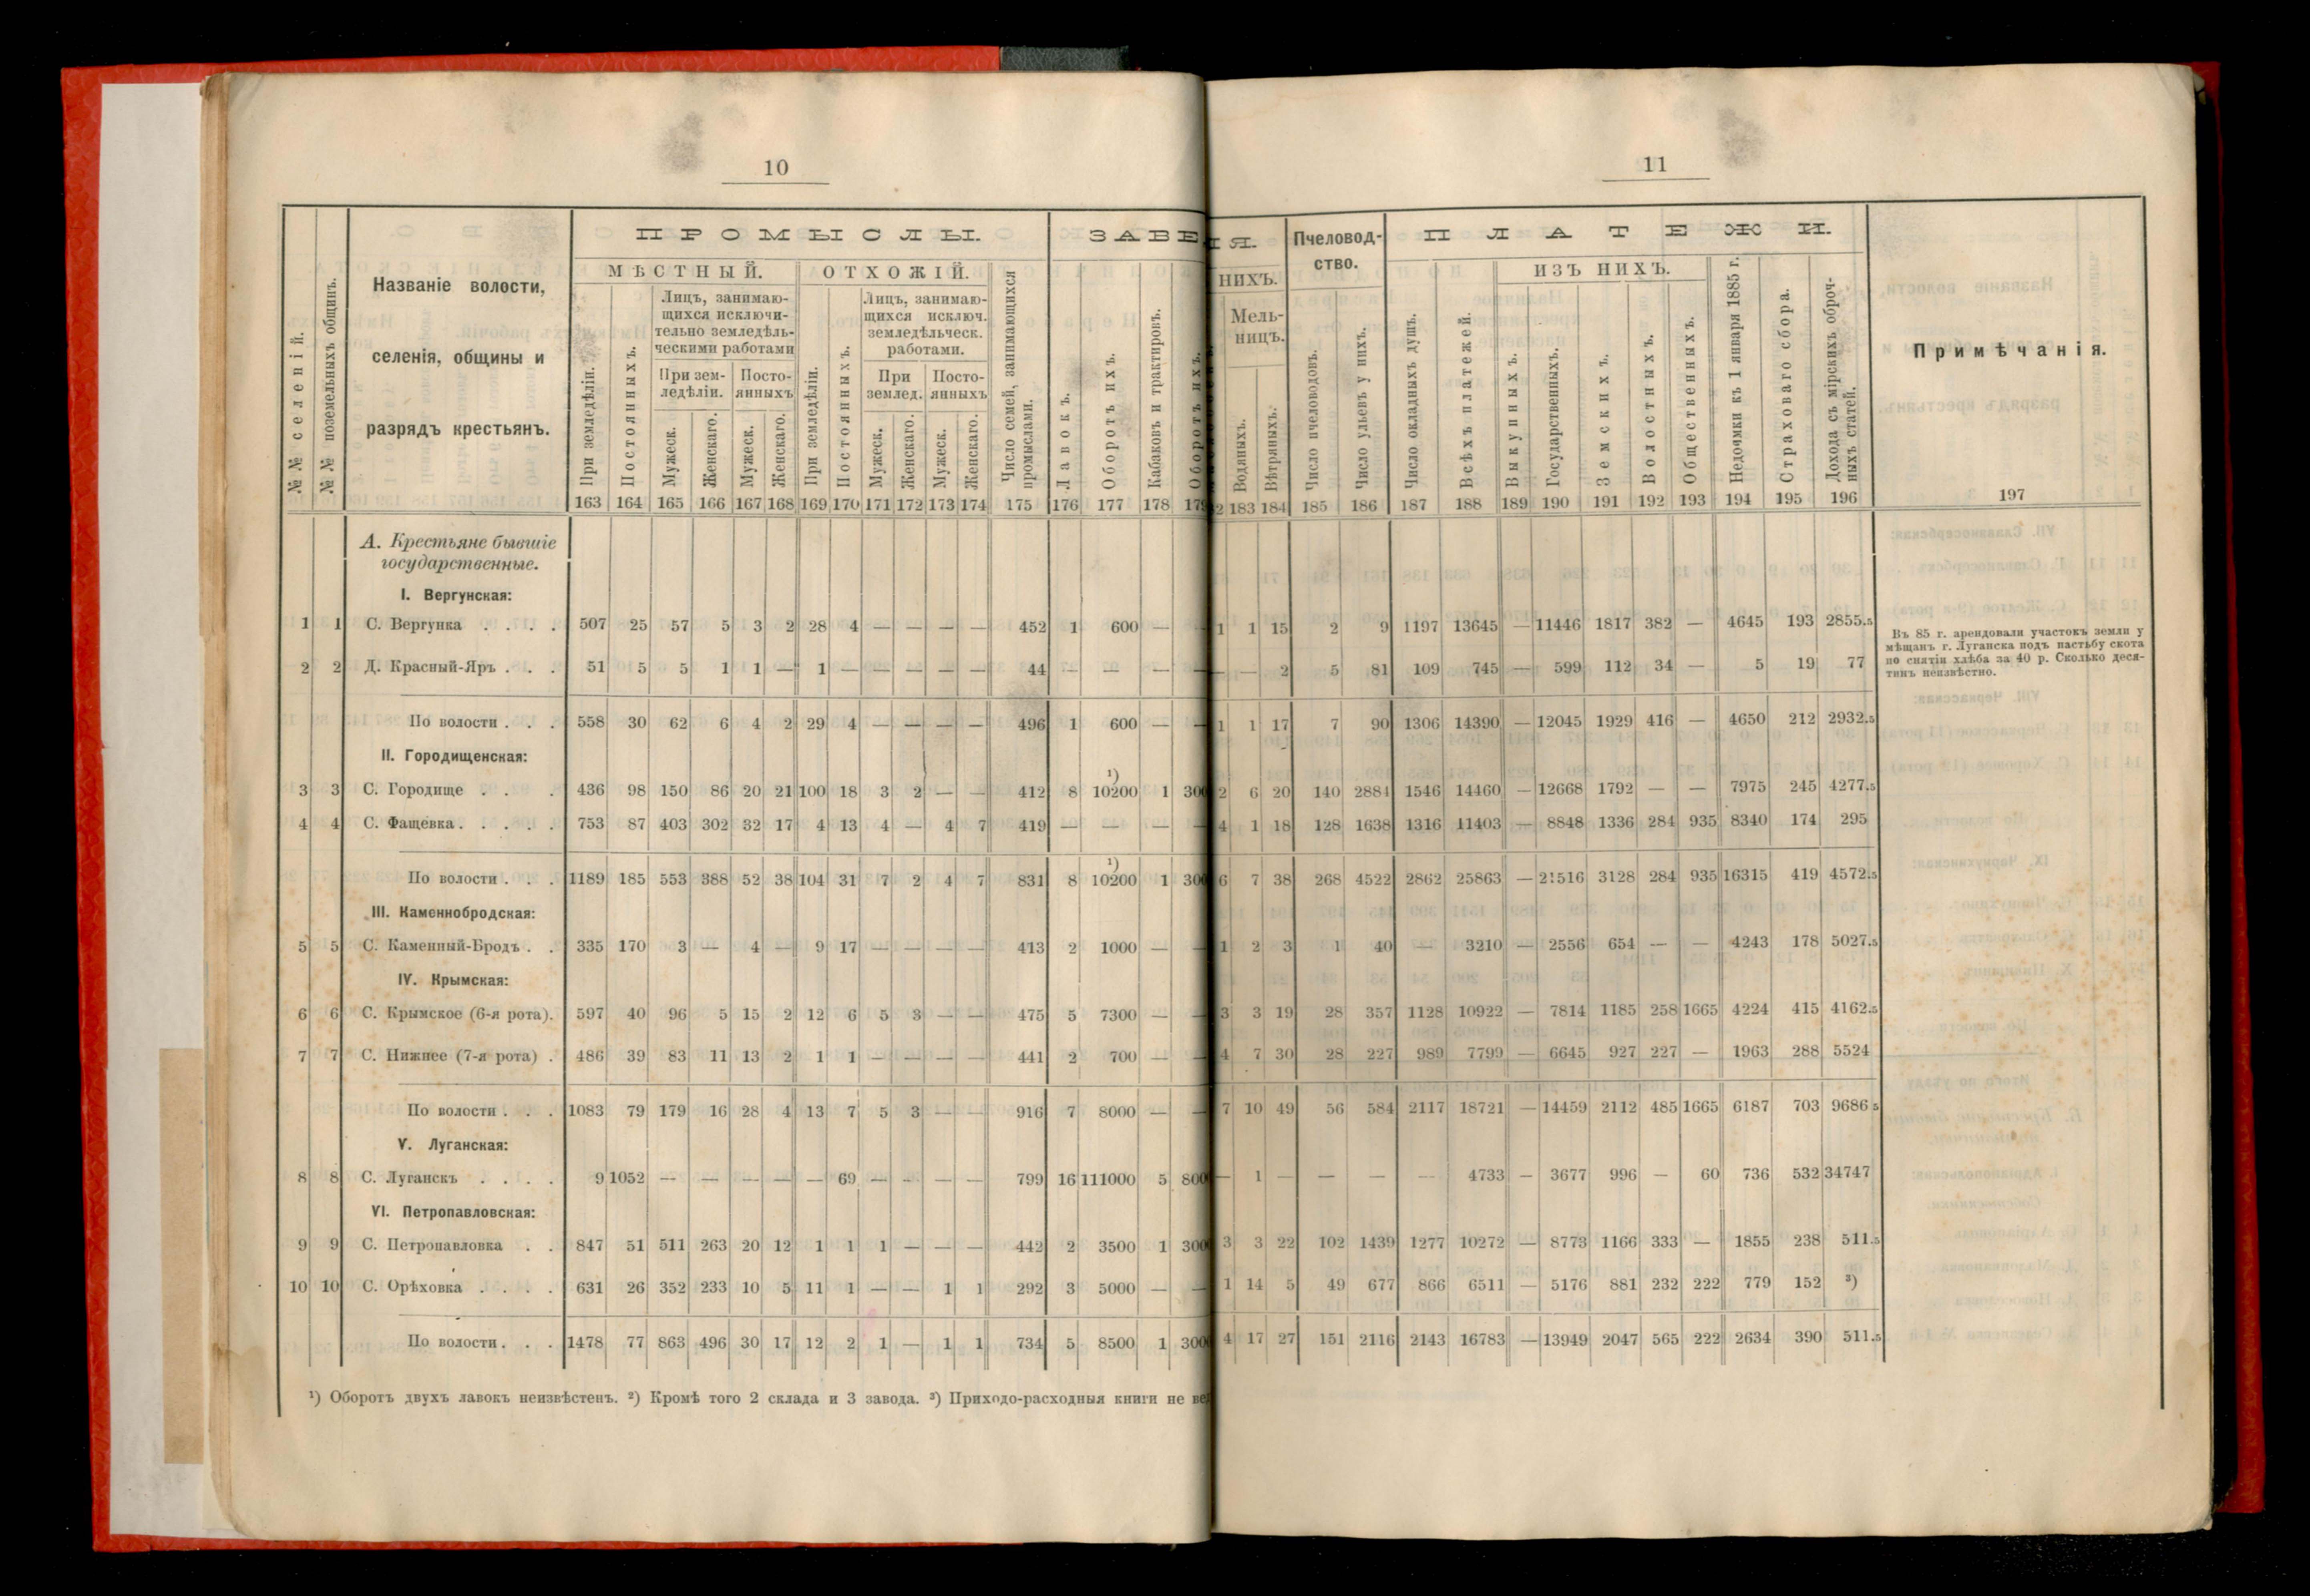 10
ПРОМЫСЛЫ.
МѢСТНЫЙ.
ОТХОЖІЙ.
№№ селеній.
№№ поземельныхъ общинъ.
Названіе волости,
селенія, общины и
разрядъ крестьянъ.
При земледѣліи.
Постоянныхъ.
Лицъ, занимаю-
щихся исключи-
тельно земледѣль-
ческими работами
При зем-
ледѣліи.
Посто-
янныхъ
Мужеск.
Женскаго.
Мужеск.
Женскаго.
При земледѣліи.
Постоянныхъ.
Лицъ, занимаю-
щихся исключ.
земледѣльческ.
работами.
При
землед.
Посто-
янныхъ
Мужеск.
Женскаго.
Мужеск.
Женскаго.
Число семей, занимающихся
промыслами.
ЗАВЕ
Лавокъ.
Оборотъ ихъ.
Кабаковъ и трактировъ.
Оборотъ ихъ.
163 164 165 166 167 168 169 170 171 172 173 174 175 176 177 178 179
А. Крестьяне бывшіе
государственные.
I. Вергунская:
1 1 С. Вергунка . . . . 507 25 57 5 3 2 28 4 — — — — 452 1 600 — —
2 2 Д. Красный-Яръ . . . 51 5 5 1 1 — 1 — — — — — 44 — — — —
По волости . . . 558 30 62 6 4 2 29 4 — — — — 496 1 600 — —
II. Городищенская:
3 3 С. Городище . . . 436 98 150 86 20 21 100 18 3 2 — — 412 8 ¹) 10200 1 300
4 4 С. Фащевка . . . . . 753 87 403 302 32 17 4 13 4 — 4 7 419 — — — —
По волости . . . 1189 185 553 388 52 38 104 31 7 2 4 7 831 8 ¹) 10200 1 300
III. Каменнобродская:
5 5 С. Каменный-Бродъ . . 335 170 3 — 4 — 9 17 — — — — 413 2 1000 — —
IV. Крымская:
6 6 С. Крымское (6-я рота). 597 40 96 5 15 2 12 6 5 3 — — 475 5 7300 — —
7 7 С. Нижнее (7-я рота) . 486 39 83 11 13 2 1 1 — — — — 441 2 700 — —
По волости . . . 1083 79 179 16 28 4 13 7 5 3 — — 916 7 8000 — —
V. Луганская:
8 8 С. Луганскъ . . . . 9 1052 — — — — — 69 — — — — 799 16 111000 5 800
VI. Петропавловская:
9 9 С. Петропавловка . . 847 51 511 263 20 12 1 1 1 — — — 442 2 3500 1 300
10 10 С. Орѣховка . . . . 631 26 352 233 10 5 11 1 — — 1 1 292 3 5000 — —
По волости . . . 1478 77 863 496 30 17 12 2 1 — 1 1 734 5 8500 1 300
¹) Оборотъ двухъ лавокъ неизвѣстенъ. ²) Кромѣ того 2 склада и 3 завода. ³) Приходо-расходныя книги не ве
11
ІЯ.
НИХЪ.
Мель-
ницъ.
Водяныхъ.
Вѣтряныхъ.
Пчеловод-
ство.
Число пчеловодовъ.
Число ульевъ у нихъ.
ПЛАТЕЖИ.
Число окладныхъ душъ.
Всѣхъ платежей.
ИЗЪ НИХЪ.
Выкупныхъ.
Государственныхъ.
Земскихъ.
Волостныхъ.
Общественныхъ.
Недоимки къ 1 января 1885 г.
Страховаго сбора.
Дохода съ мірскихъ оброч-
ныхъ статей.
Примѣчанія.
2 183 184 185 186 187 188 189 190 191 192 193 194 195 196 197
1 1 15 2 9 1197 13645 — 11446 1817 382 — 4645 193 2855.5
— — 2 5 81 109 745 — 599 112 34 — 5 19 77
Въ 85 г. арендовали участокъ земли у
мѣщанъ г. Луганска подъ пастьбу скота
по снятіи хлѣба за 40 р. Сколько деся-
тинъ неизвѣстно.
1 1 17 7 90 1306 14390 — 12045 1929 416 — 4650 212 2932.5
2 6 20 140 2884 1546 14460 — 12668 1792 — — 7975 245 4277.5
4 1 18 128 1638 1316 11403 — 8848 1336 284 935 8340 174 295
6 7 38 268 4522 2862 25863 — 21516 3128 284 935 16315 419 4572.5
1 2 3 1 40 — 3210 — 2556 654 — — 4243 178 5027.5
3 3 19 28 357 1128 10922 — 7814 1185 258 1665 4224 415 4162.5
4 7 30 28 227 989 7799 — 6645 927 227 — 1963 288 5524
7 10 49 56 584 2117 18721 — 14459 2112 485 1665 6187 703 9686.5
— 1 — — — — 4733 — 3677 996 — 60 736 532 34747
3 3 22 102 1439 1277 10272 — 8773 1166 333 — 1855 238 511.5
1 14 5 49 677 866 6511 — 5176 881 232 222 779 152 ³)
4 17 27 151 2116 2143 16783 — 13949 2047 565 222 2634 390 511.5